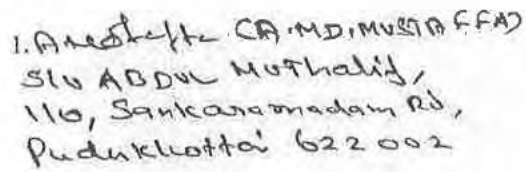 1. (A.MD.MUSTAFFA)
S/o ABDUL MUThalif,
110, Sankaramadam Rd,
Pudukkottai 622 002